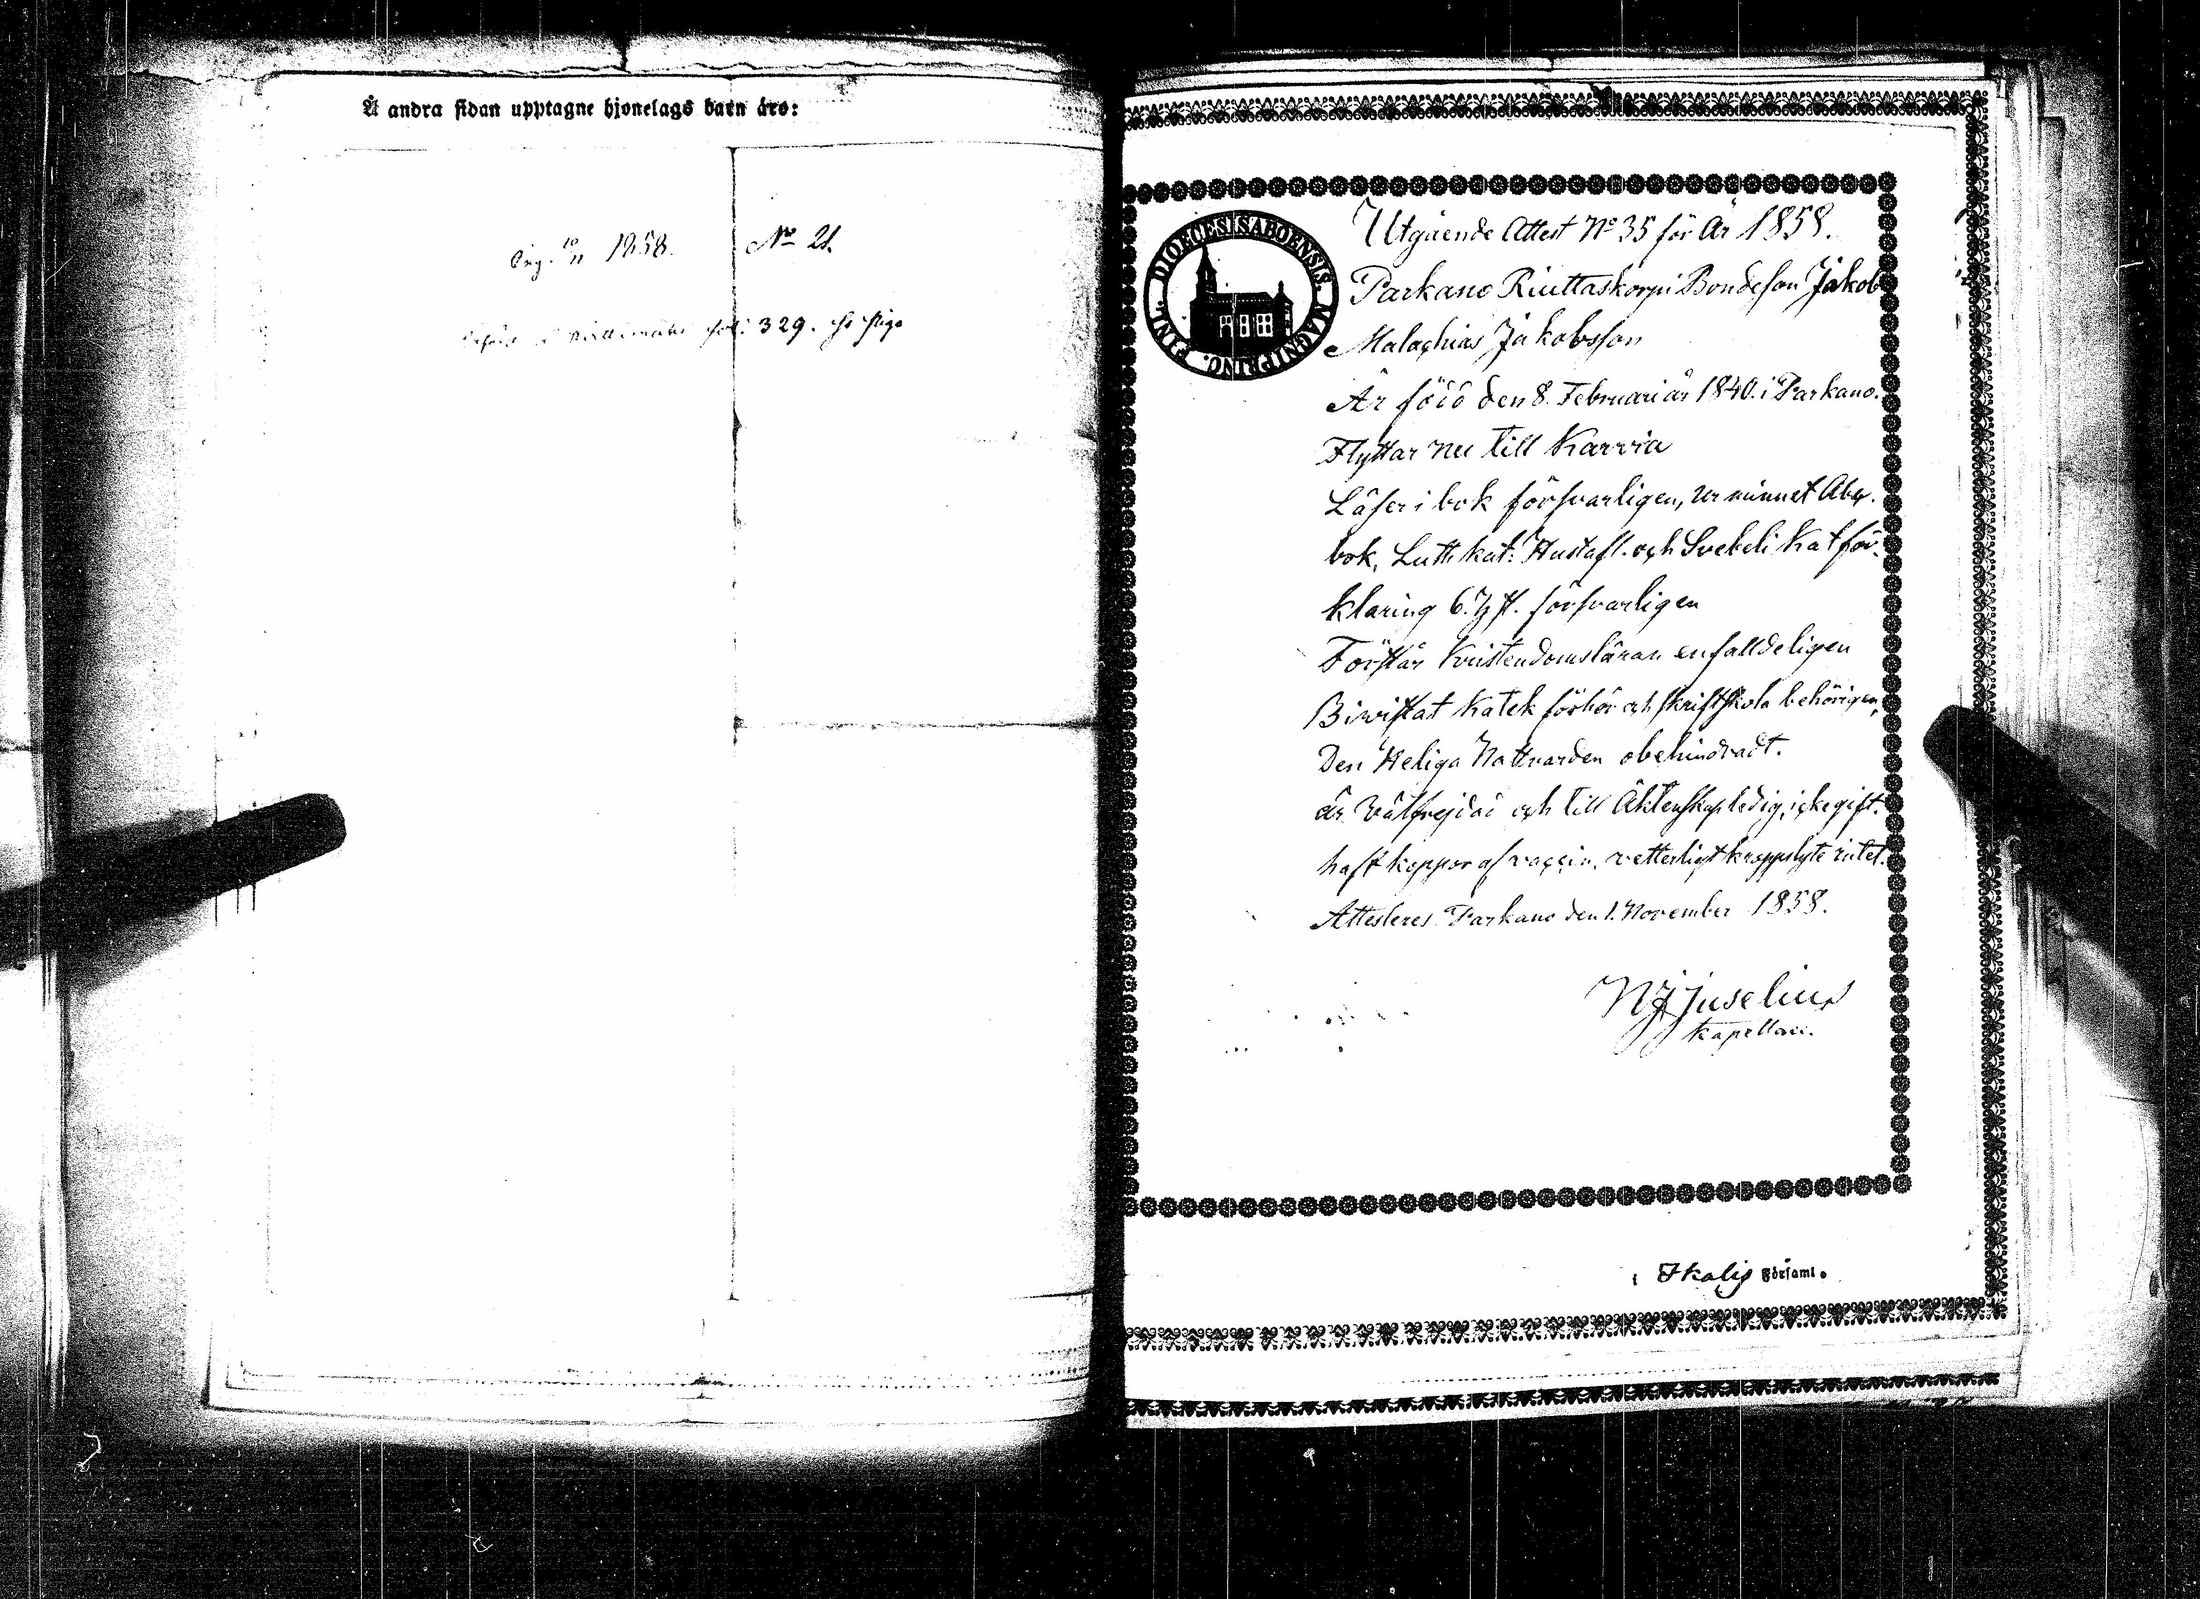 Å andra sidan upptagne hjonelags barn äro:
Ing. 10/11 1858. No 21.
fol: 329.
DIOECESIS ABOENSIS. MAGN. PRINC. FINL.
Utgående Attest No 35 för År 1858.
Parkano Riuttaskorpi Bondeson Jakob
Malachias Jakobsson
Är född den 8. Februari år 1840. i Parkano.
Flyttar nu till Karvia
Läser i bok försvarligen, ur minnet Abc.
bok, Luth. kat: Hustafl. och Svebeli Kat för-
klaring 6. försvarligen
Förstår Kristendomsläran enfalldeligen
Bivistat Katek förhör och skriftskola behörigen,
Den Heliga Nattvarden obehindradt.
är välfrejdad och till Äktenskap ledig, icke gift.
haft koppor af vaccin. vetterligt kroppslyte intet.
Attesteres Parkano den 1. November 1858.
NJ Juselius
Kapellan.
i Ikalis Församl.